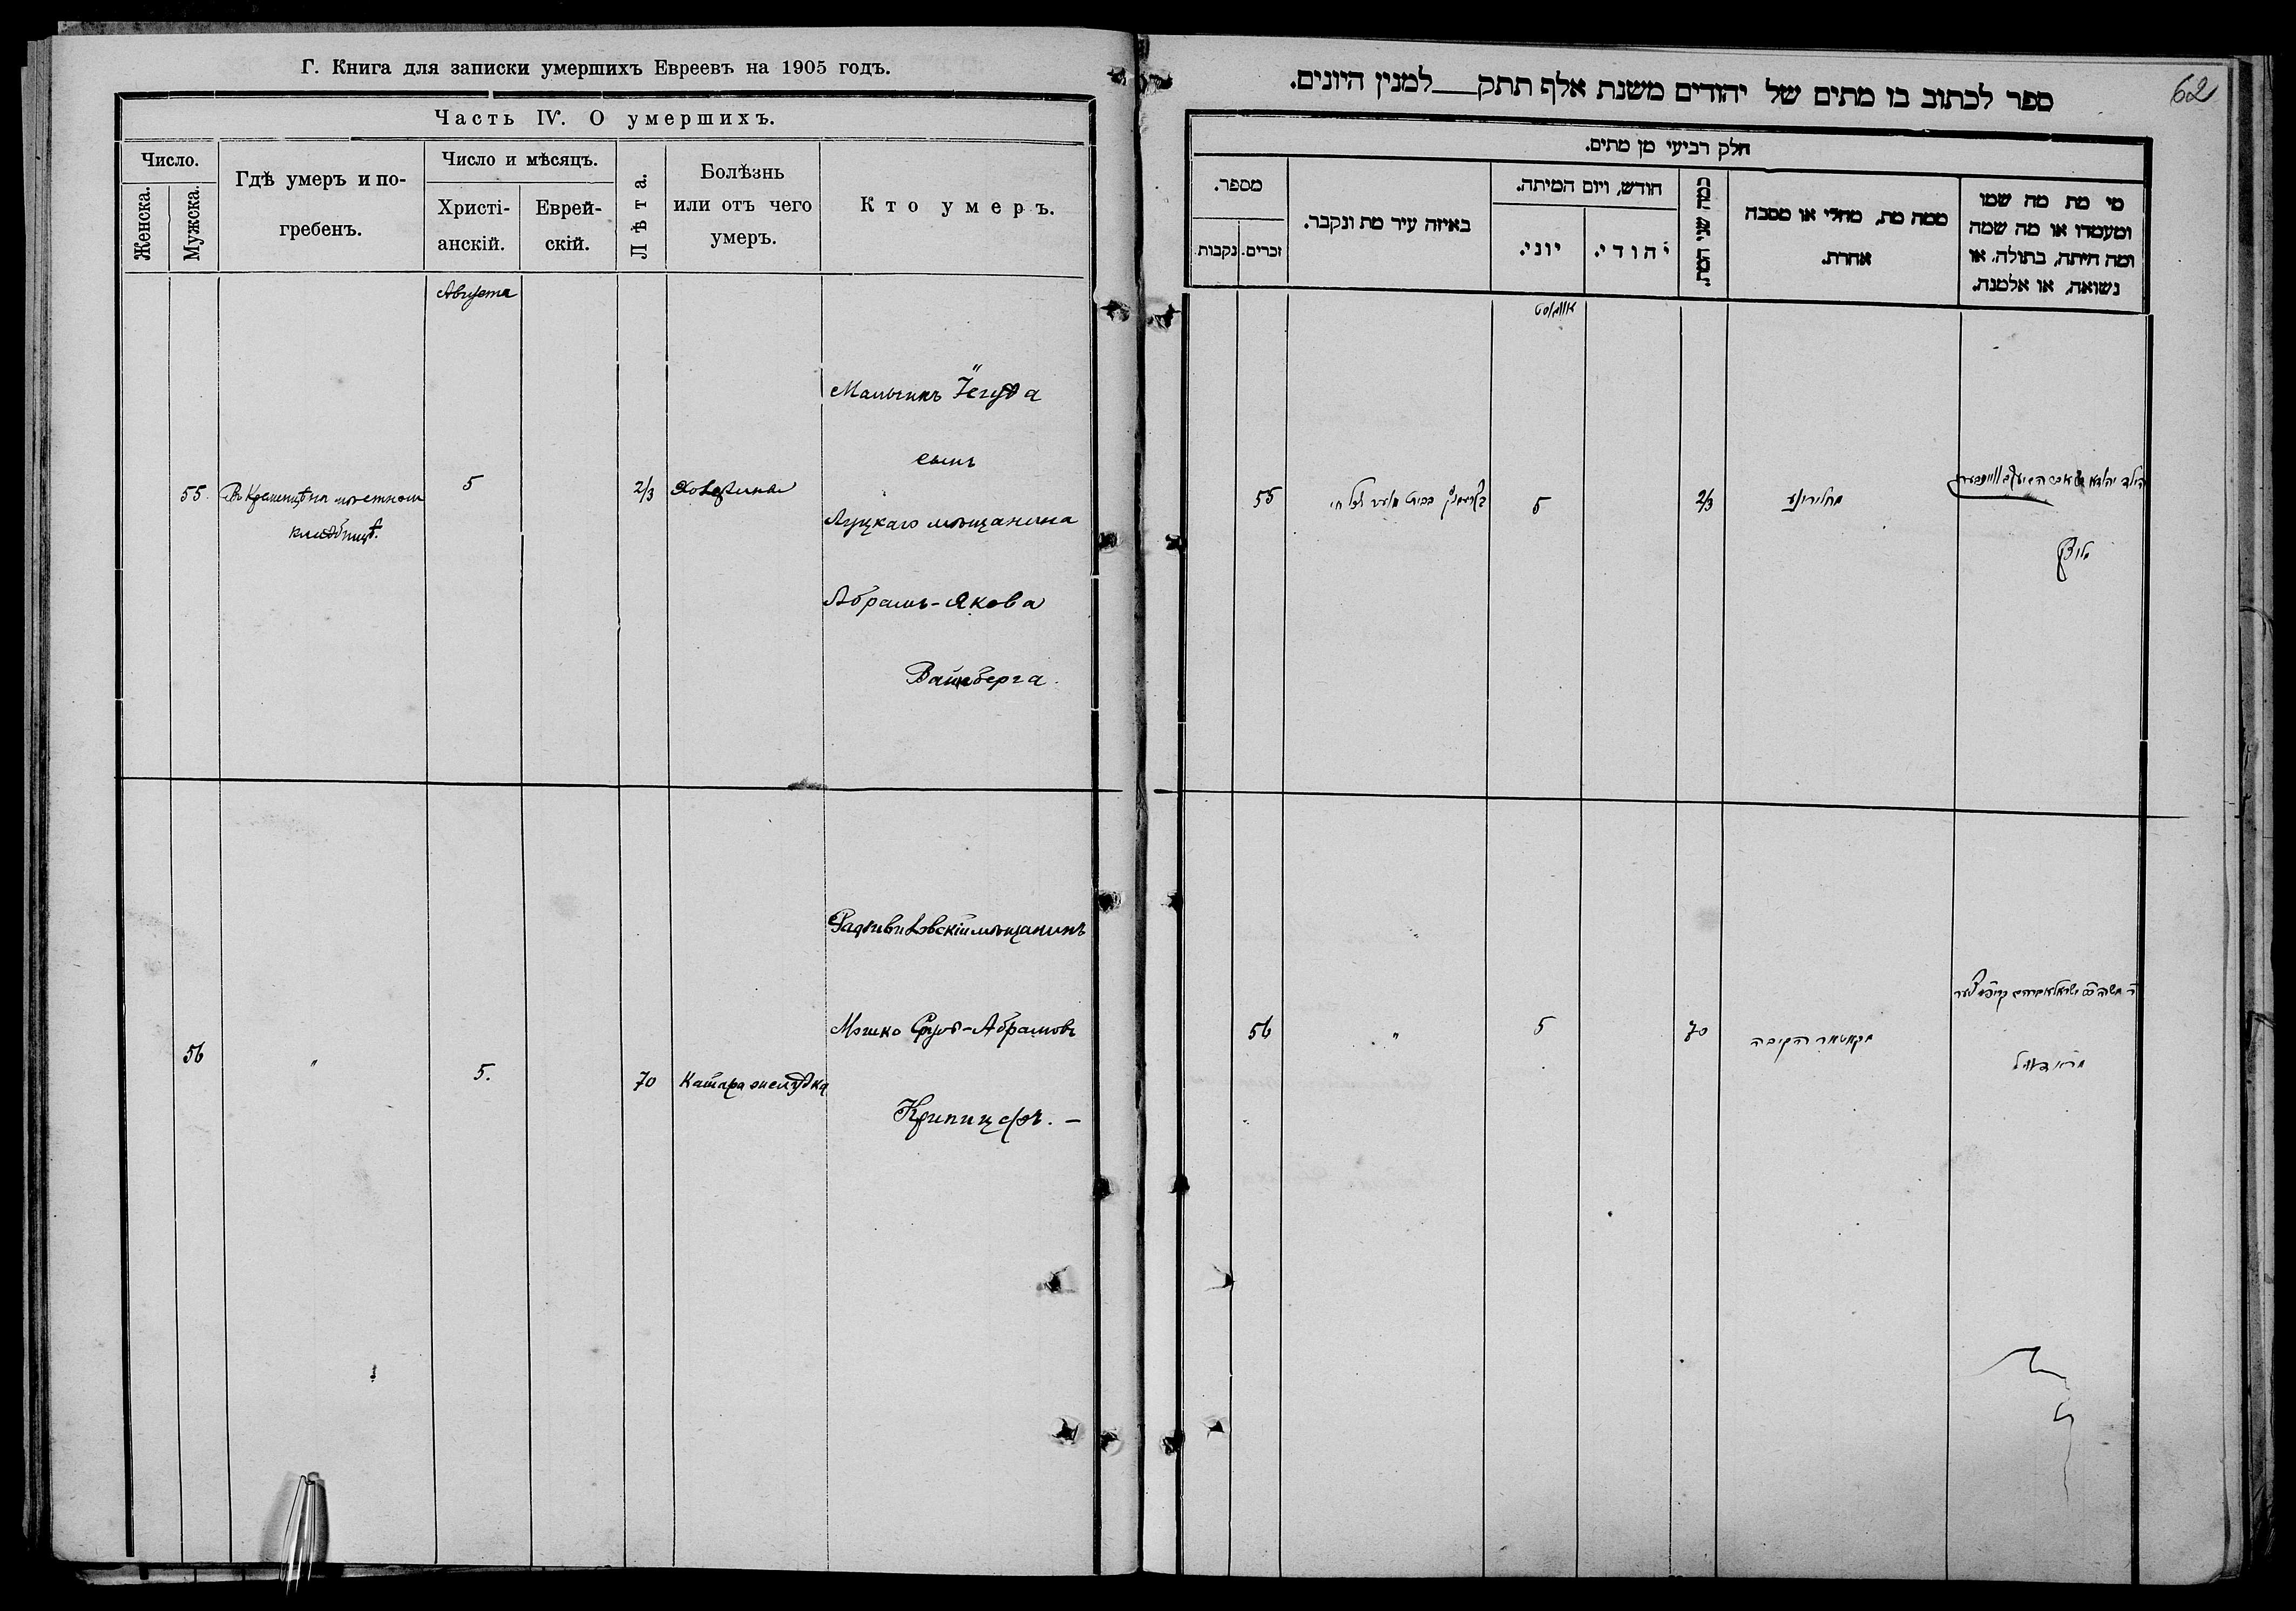 Г. Книга для записки умершихъ Евреевъ на 1905 годъ.
Часть IV. О умершихъ.
Число.
Женска.
Мужска.
Гдѣ умеръ и по-
гребенъ.
Число и мѣсяцъ.
Христі-
анскій.
Еврей-
скій.
Лѣта.
Болѣзнь
или отъ чего
умеръ.
Кто умеръ.
Августа
55.
Въ Кременцѣ на мѣстном
кладбищѣ.
5
2/3
Холерина
Мальчикъ Іегуда
сынъ
Луцкаго мѣщанина
Абрамъ-Якова
Вайнберга.
56
"
5.
70
Катара желудка
Радзивиловскій мѣщанинъ
Мошко Сруль-Абрамовъ
Крипицеръ. –
62
ספר לכתוב בו מתים של יהודים משנת אלף תתק למנין היונים.
חלק רביעי מן מתים.
מספר.
זכרים.
נקבות
באיזה עיר מת ונקבר.
חודש, ויום המיתה.
יוני.
יהודי.
כמה שני המת.
ממה מת, מחלי או מסבה
אחרת.
מי מת מה שמו
ומעמדו או מה שמה
ומה היתה, בתולה, או
נשואה, או אלמנה.
אווגוסט
55
5
2/3
חלירינע
הילד יהודא
לוצק
56
"
5
70
הקיבה